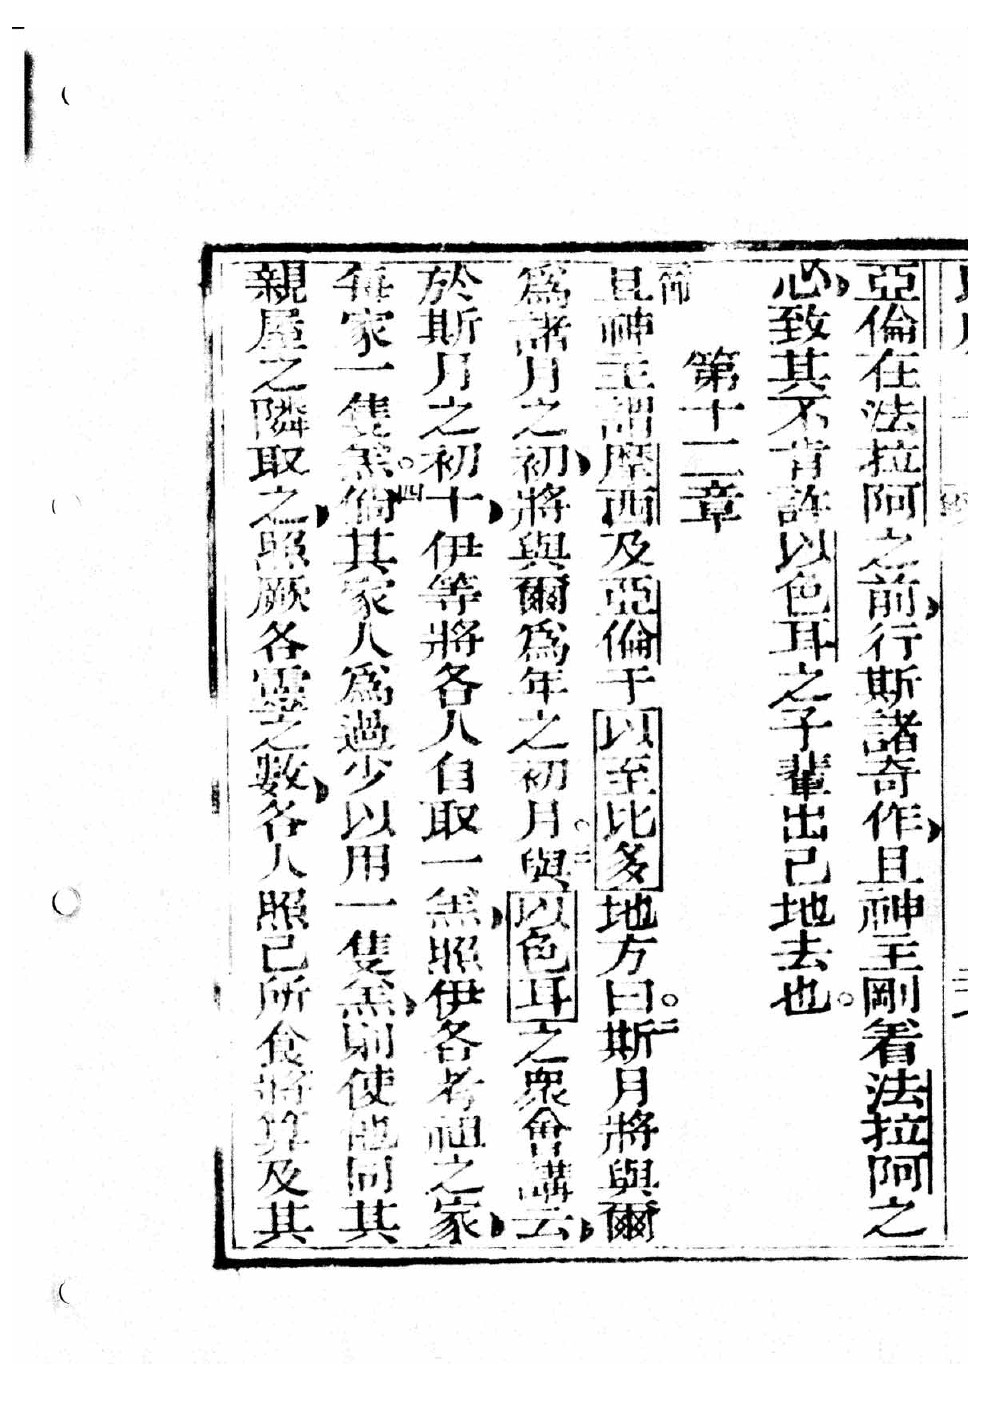 亞倫在法拉阿之前行斯諸奇作且神主剛着法拉阿之
心致其不肯許以色耳之子輩出己地去也。
第十二章
且神主謂摩西及亞倫于以至比多地方曰。斯二月將與爾
為諸月之初將與爾為年之初月。三與以色耳之衆會講云
於斯月之初十伊等將各人自取一羔照伊各考祖之家
每家一隻羔。四倘其家人為過少以用一隻羔則使他同其
親屋之隣取之照厥各靈之數各人照己所食將算及其